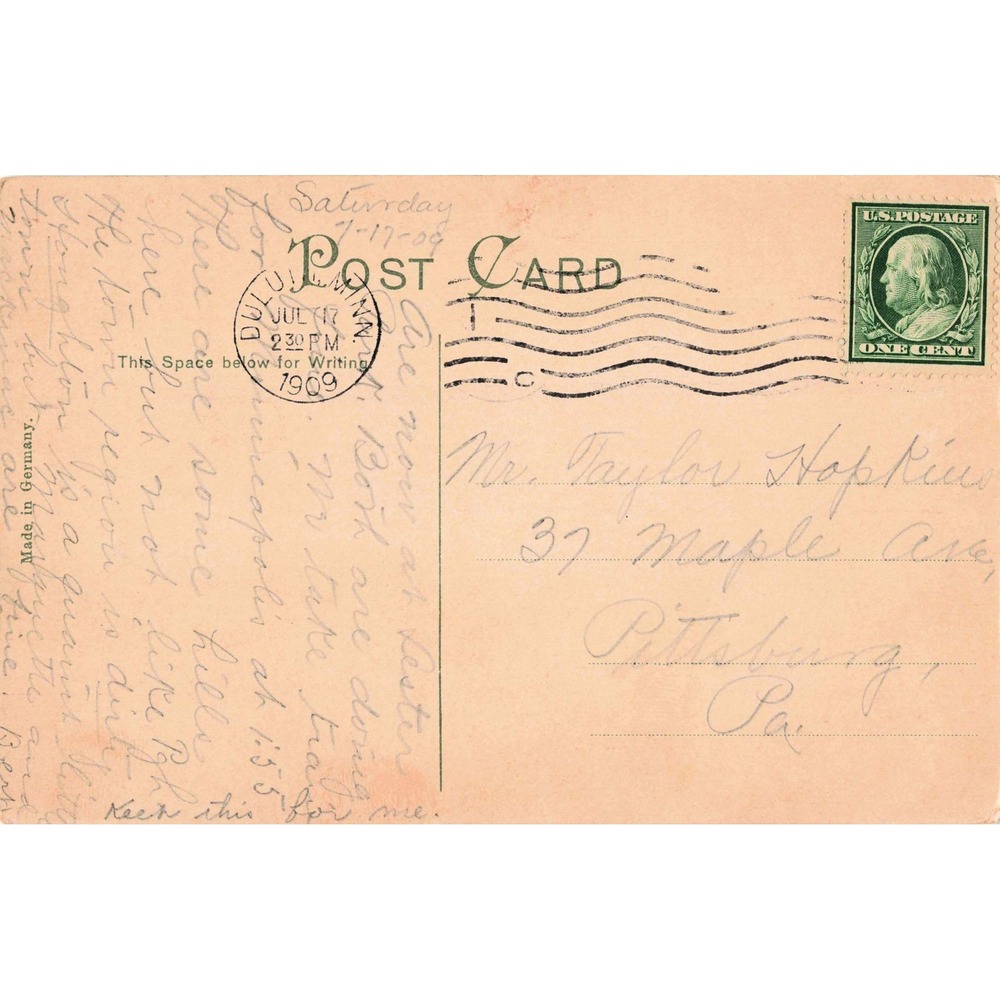 Saturday
7-17-09
POST CARD
U.S. POSTAGE
ONE CENT
DULUTH, MINN.
JUL 17
2 30 PM
1909
1
C
This Space below for Writing.
Made in Germany.
Are now at Lester
Park. Both are doing
O.K. We take train
for Minneapolis at 1:55
There are some hills
here but not like Pgh
The iron region is dirty
Houghton is a quaint little
town but Marquette and
are fine.
Keep this for me.
Mr. Taylor Hopkins
37 Maple Ave,
Pittsburg,
Pa.